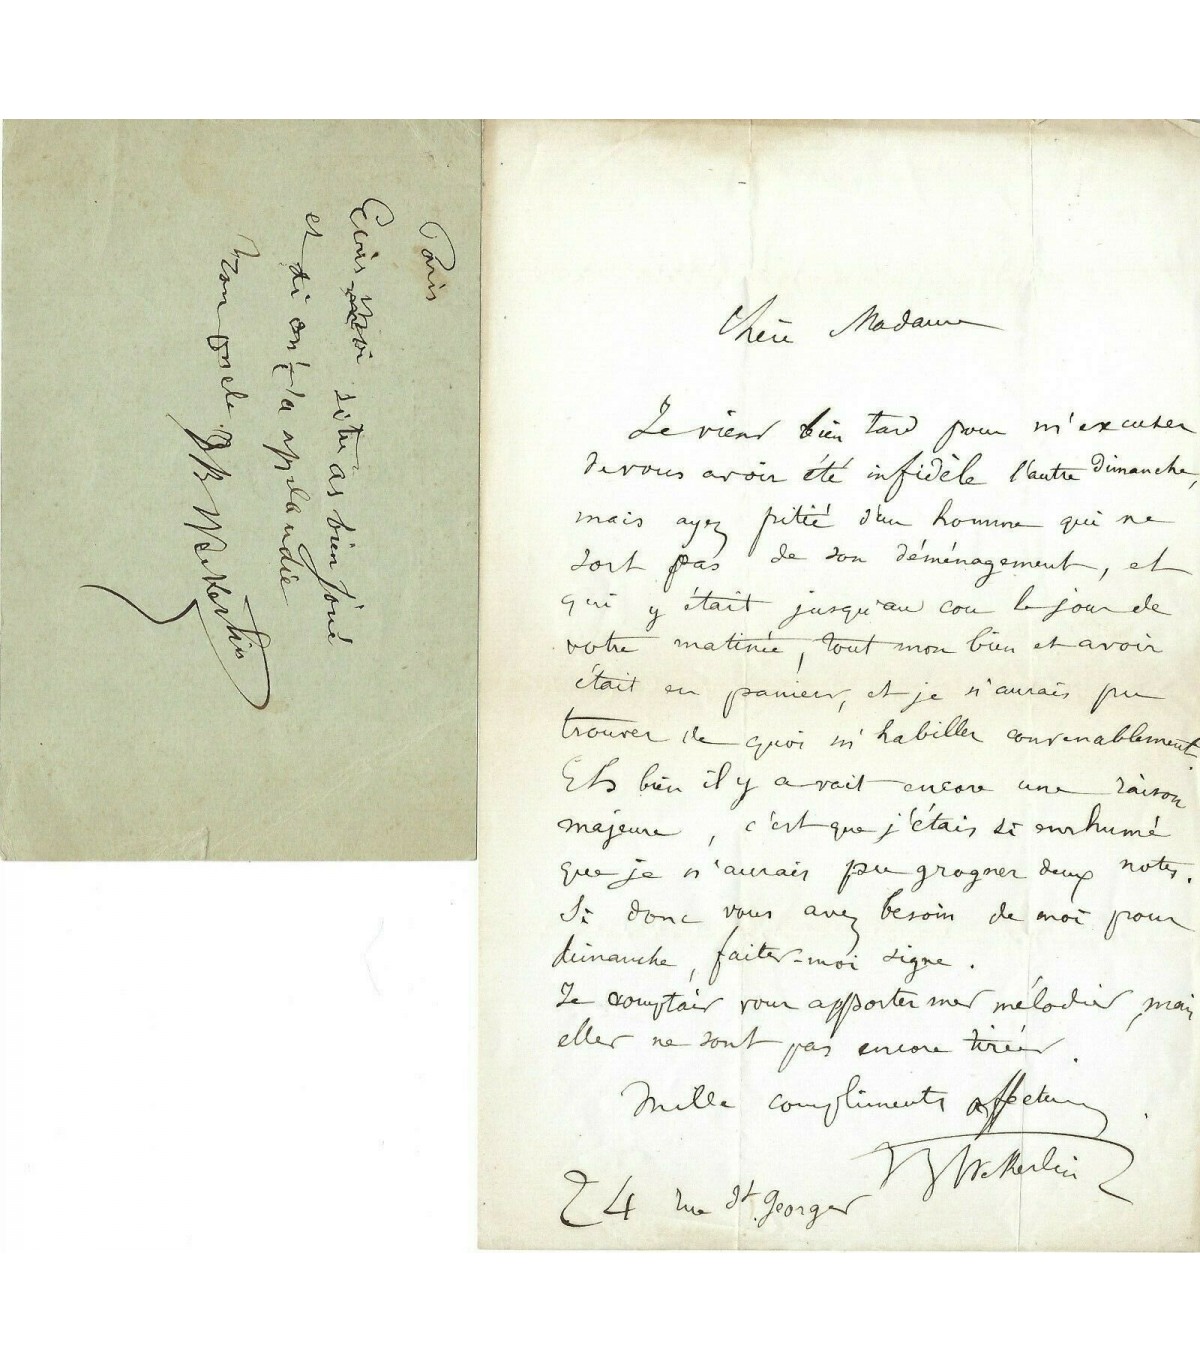 Paris
Ecris moi si tu as bien joué
et si on t'a applaudie
ton oncle JB Wekerlin
Chère Madame
Je viens bien tard pour m'excuser
de vous avoir été infidèle l'autre dimanche,
mais ayez pitié d'un homme qui ne
sort pas de son déménagement, et
qui y était jusqu'au cou le jour de
votre matinée, tout mon bien et avoir
était en paniers, et je n'aurais pu
trouver de quoi m'habiller convenablement.
Eh bien il y avait encore une raison
majeure, c'est que j'étais si enrhumé
que je n'aurais pu grogner deux notes.
Si donc vous avez besoin de moi pour
dimanche, faites-moi signe.
Je comptais vous apporter mes mélodies, mais
elles ne sont pas encore tirées.
Mille compliments affectueux
JB Wekerlin
24 rue St. Georges